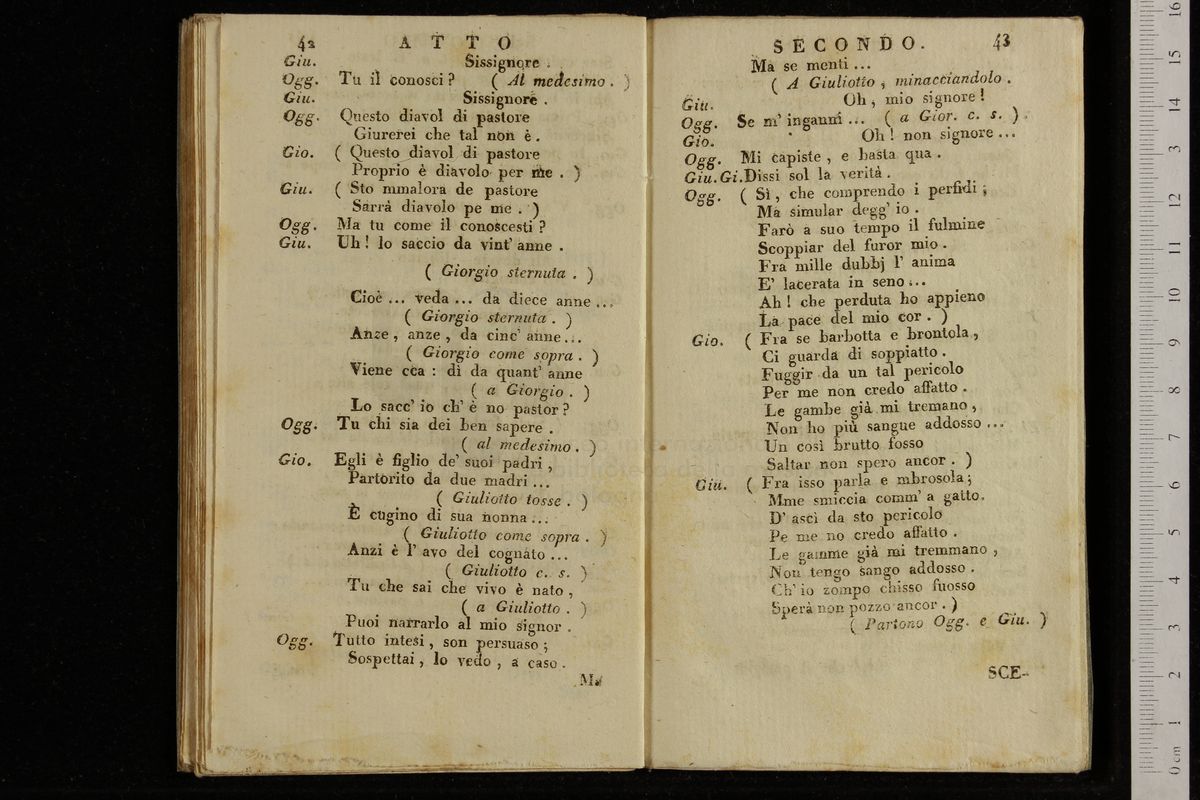 42 ATTO
Giu. Sissignore.
Ogg. Tu il conosci? (Al medesimo.)
Giu. Sissignore.
Ogg. Questo diavol di pastore
Giurerei che tal non è.
Gio. (Questo diavol di pastore
Proprio è diavolo per me.)
Giu. (Sto mmalora de pastore
Sarrà diavolo pe me.)
Ogg. Ma tu come il conoscesti?
Giu. Uh! lo saccio da vint' anne.
(Giorgio sternuta.)
Cioè... veda... da diece anne...
(Giorgio sternuta.)
Anze, anze, da cinc' anne...
(Giorgio come sopra.)
Viene cca: dì da quant' anne
(a Giorgio.)
Lo sacc' io ch' è no pastor?
Ogg. Tu chi sia dei ben sapere.
(al medesimo.)
Gio. Egli è figlio de' suoi padri,
Partorito da due madri...
(Giuliotto tosse.)
È cugino di sua nonna...
(Giuliotto come sopra.)
Anzi è l' avo del cognato...
(Giuliotto c. s.)
Tu che sai che vivo è nato,
(a Giuliotto.)
Puoi narrarlo al mio signor.
Ogg. Tutto intesi, son persuaso;
Sospettai, lo vedo, a caso.
Ma
SECONDO. 43
Ma se menti...
(A Giuliotto, minacciandolo.
Giu. Oh, mio signore!
Ogg. Se m' inganni... (a Gior. c. s.)
Gio. Oh! non signore...
Ogg. Mi capiste, e basta qua.
Giu. Gi. Dissi sol la verità.
Ogg. (Sì, che comprendo i perfidi;
Ma simular degg' io.
Farò a suo tempo il fulmine
Scoppiar del furor mio.
Fra mille dubbj l' anima
E' lacerata in seno...
Ah! che perduta ho appieno
La pace del mio cor.)
Gio. (Fra se barbotta e brontola,
Ci guarda di soppiatto.
Fuggir da un tal pericolo
Per me non credo affatto.
Le gambe già mi tremano,
Non ho più sangue addosso...
Un così brutto fosso
Saltar non spero ancor.)
Giu. (Fra isso parla e mbrosola;
Mme smiccia comm' a gatto.
D' ascì da sto pericolo
Pe me no credo affatto.
Le gamme già mi tremmano,
Non tengo sango addosso.
Ch' io zompo chisso fuosso
Sperà non pozzo ancor.)
(Partono Ogg. e Giu.)
SCE-